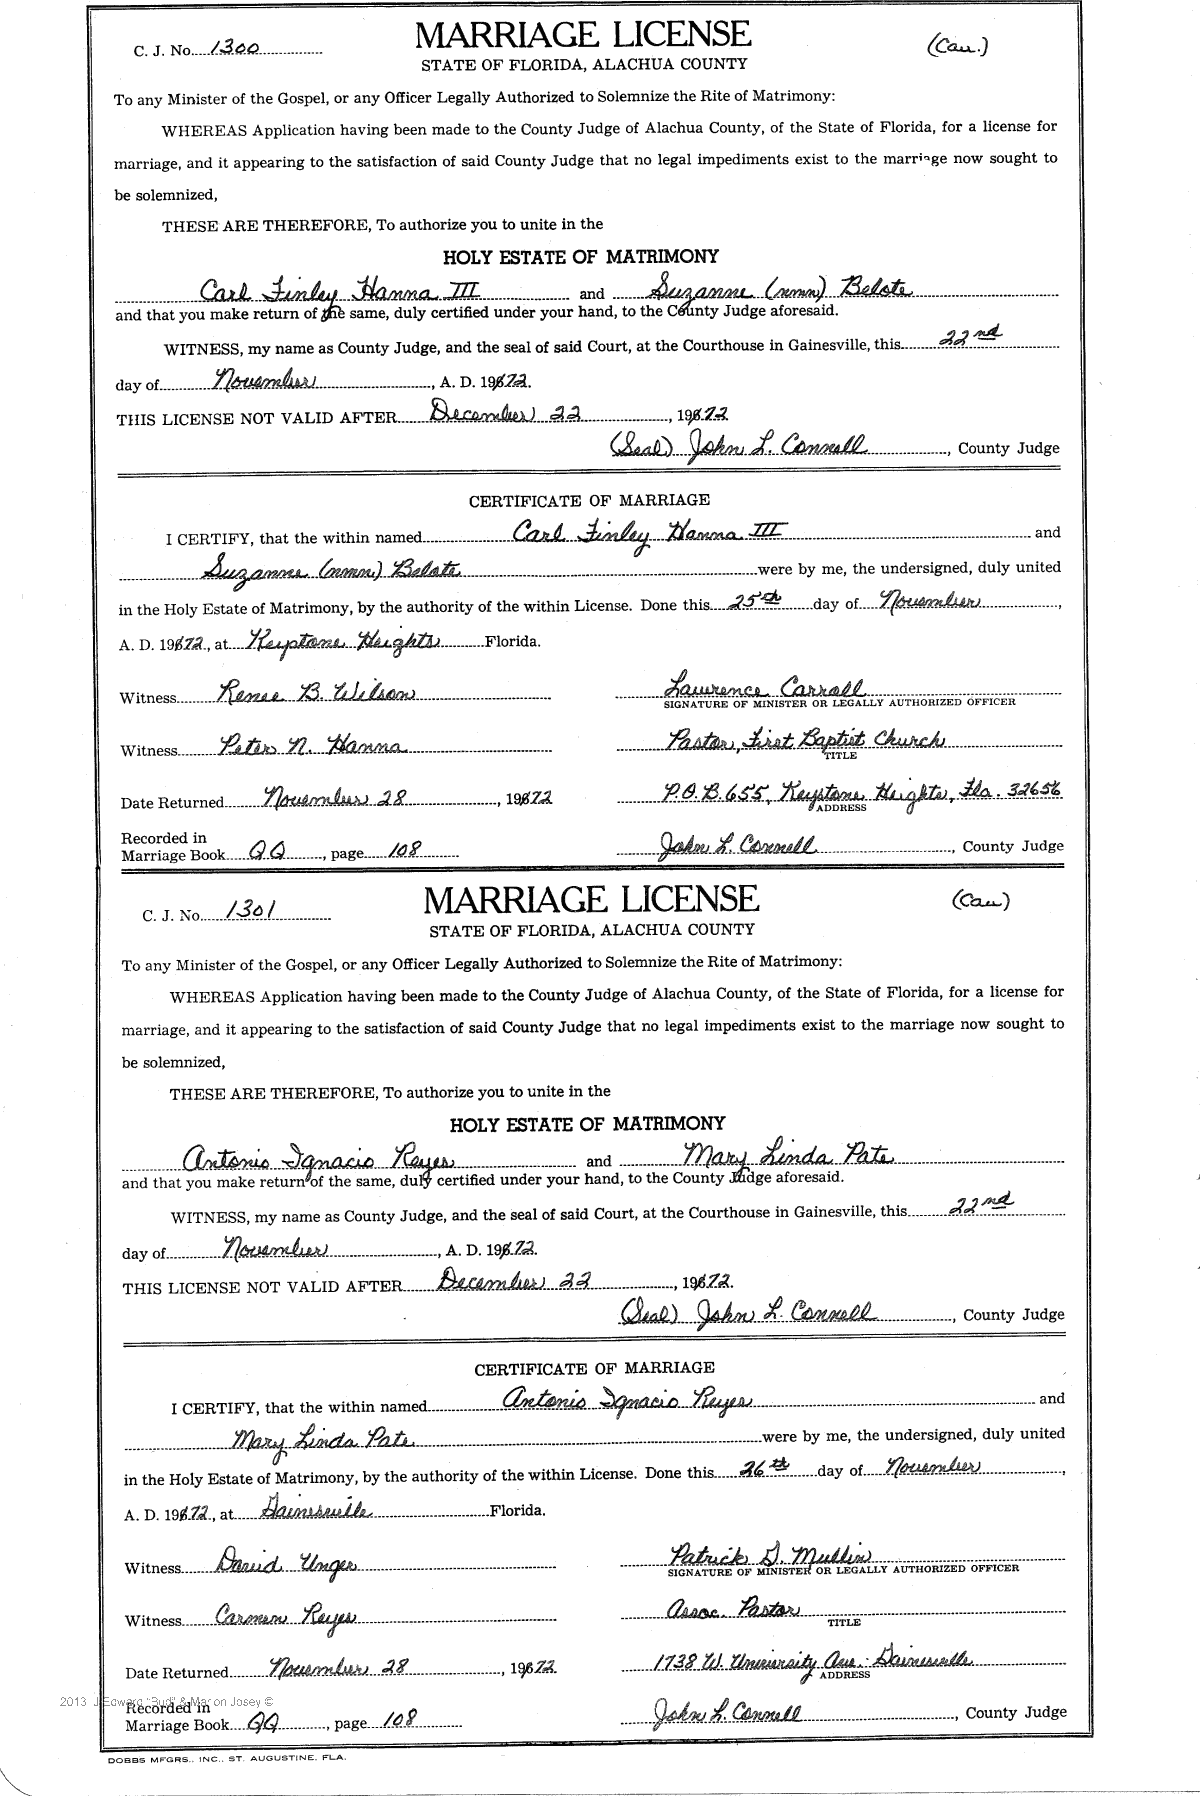 C. J. No. 1300 MARRIAGE LICENSE (Cau.)
STATE OF FLORIDA, ALACHUA COUNTY
To any Minister of the Gospel, or any Officer Legally Authorized to Solemnize the Rite of Matrimony:
WHEREAS Application having been made to the County Judge of Alachua County, of the State of Florida, for a license for
marriage, and it appearing to the satisfaction of said County Judge that no legal impediments exist to the marriage now sought to
be solemnized,
THESE ARE THEREFORE, To authorize you to unite in the
HOLY ESTATE OF MATRIMONY
Carl Finley Hanna III and Suzanne (nmn) Belote
and that you make return of the same, duly certified under your hand, to the County Judge aforesaid.
WITNESS, my name as County Judge, and the seal of said Court, at the Courthouse in Gainesville, this 22nd
day of November, A. D. 1972.
THIS LICENSE NOT VALID AFTER December 22, 1972
(Seal) John L. Connell, County Judge
CERTIFICATE OF MARRIAGE
I CERTIFY, that the within named Carl Finley Hanna III and
Suzanne (nmn.) Belote were by me, the undersigned, duly united
in the Holy Estate of Matrimony, by the authority of the within License. Done this 25th day of November,
A. D. 1972, at Keystone Heights Florida.
Witness Renee B. Wilson Lawrence Carroll
SIGNATURE OF MINISTER OR LEGALLY AUTHORIZED OFFICER
Witness Peter N. Hanna Pastor, First Baptist Church
TITLE
Date Returned November 28, 1972 P.O.B. 655, Keystone Heights, Fla. 32656
ADDRESS
Recorded in
Marriage Book QQ, page 108 John L. Connell, County Judge
C. J. No. 1301 MARRIAGE LICENSE (Cau)
STATE OF FLORIDA, ALACHUA COUNTY
To any Minister of the Gospel, or any Officer Legally Authorized to Solemnize the Rite of Matrimony:
WHEREAS Application having been made to the County Judge of Alachua County, of the State of Florida, for a license for
marriage, and it appearing to the satisfaction of said County Judge that no legal impediments exist to the marriage now sought to
be solemnized,
THESE ARE THEREFORE, To authorize you to unite in the
HOLY ESTATE OF MATRIMONY
Antonio Ignacio Reyes and Mary Linda Pate
and that you make return of the same, duly certified under your hand, to the County Judge aforesaid.
WITNESS, my name as County Judge, and the seal of said Court, at the Courthouse in Gainesville, this 22nd
day of November, A. D. 1972.
THIS LICENSE NOT VALID AFTER December 22, 1972.
(Seal) John L. Connell, County Judge
CERTIFICATE OF MARRIAGE
I CERTIFY, that the within named Antonio Ignacio Reyes and
Mary Linda Pate were by me, the undersigned, duly united
in the Holy Estate of Matrimony, by the authority of the within License. Done this 26th day of November,
A. D. 1972, at Gainesville Florida.
Witness David Unger Patrick D. Mullin
SIGNATURE OF MINISTER OR LEGALLY AUTHORIZED OFFICER
Witness Carmen Reyes Assoc. Pastor
TITLE
Date Returned November 28, 1972 1738 W. University Ave. Gainesville
ADDRESS
2013 J Edward "Bud" & Marion Josey ©
Recorded in
Marriage Book QQ, page 108 John L. Connell, County Judge
DOBBS MFGRS., INC., ST. AUGUSTINE, FLA.